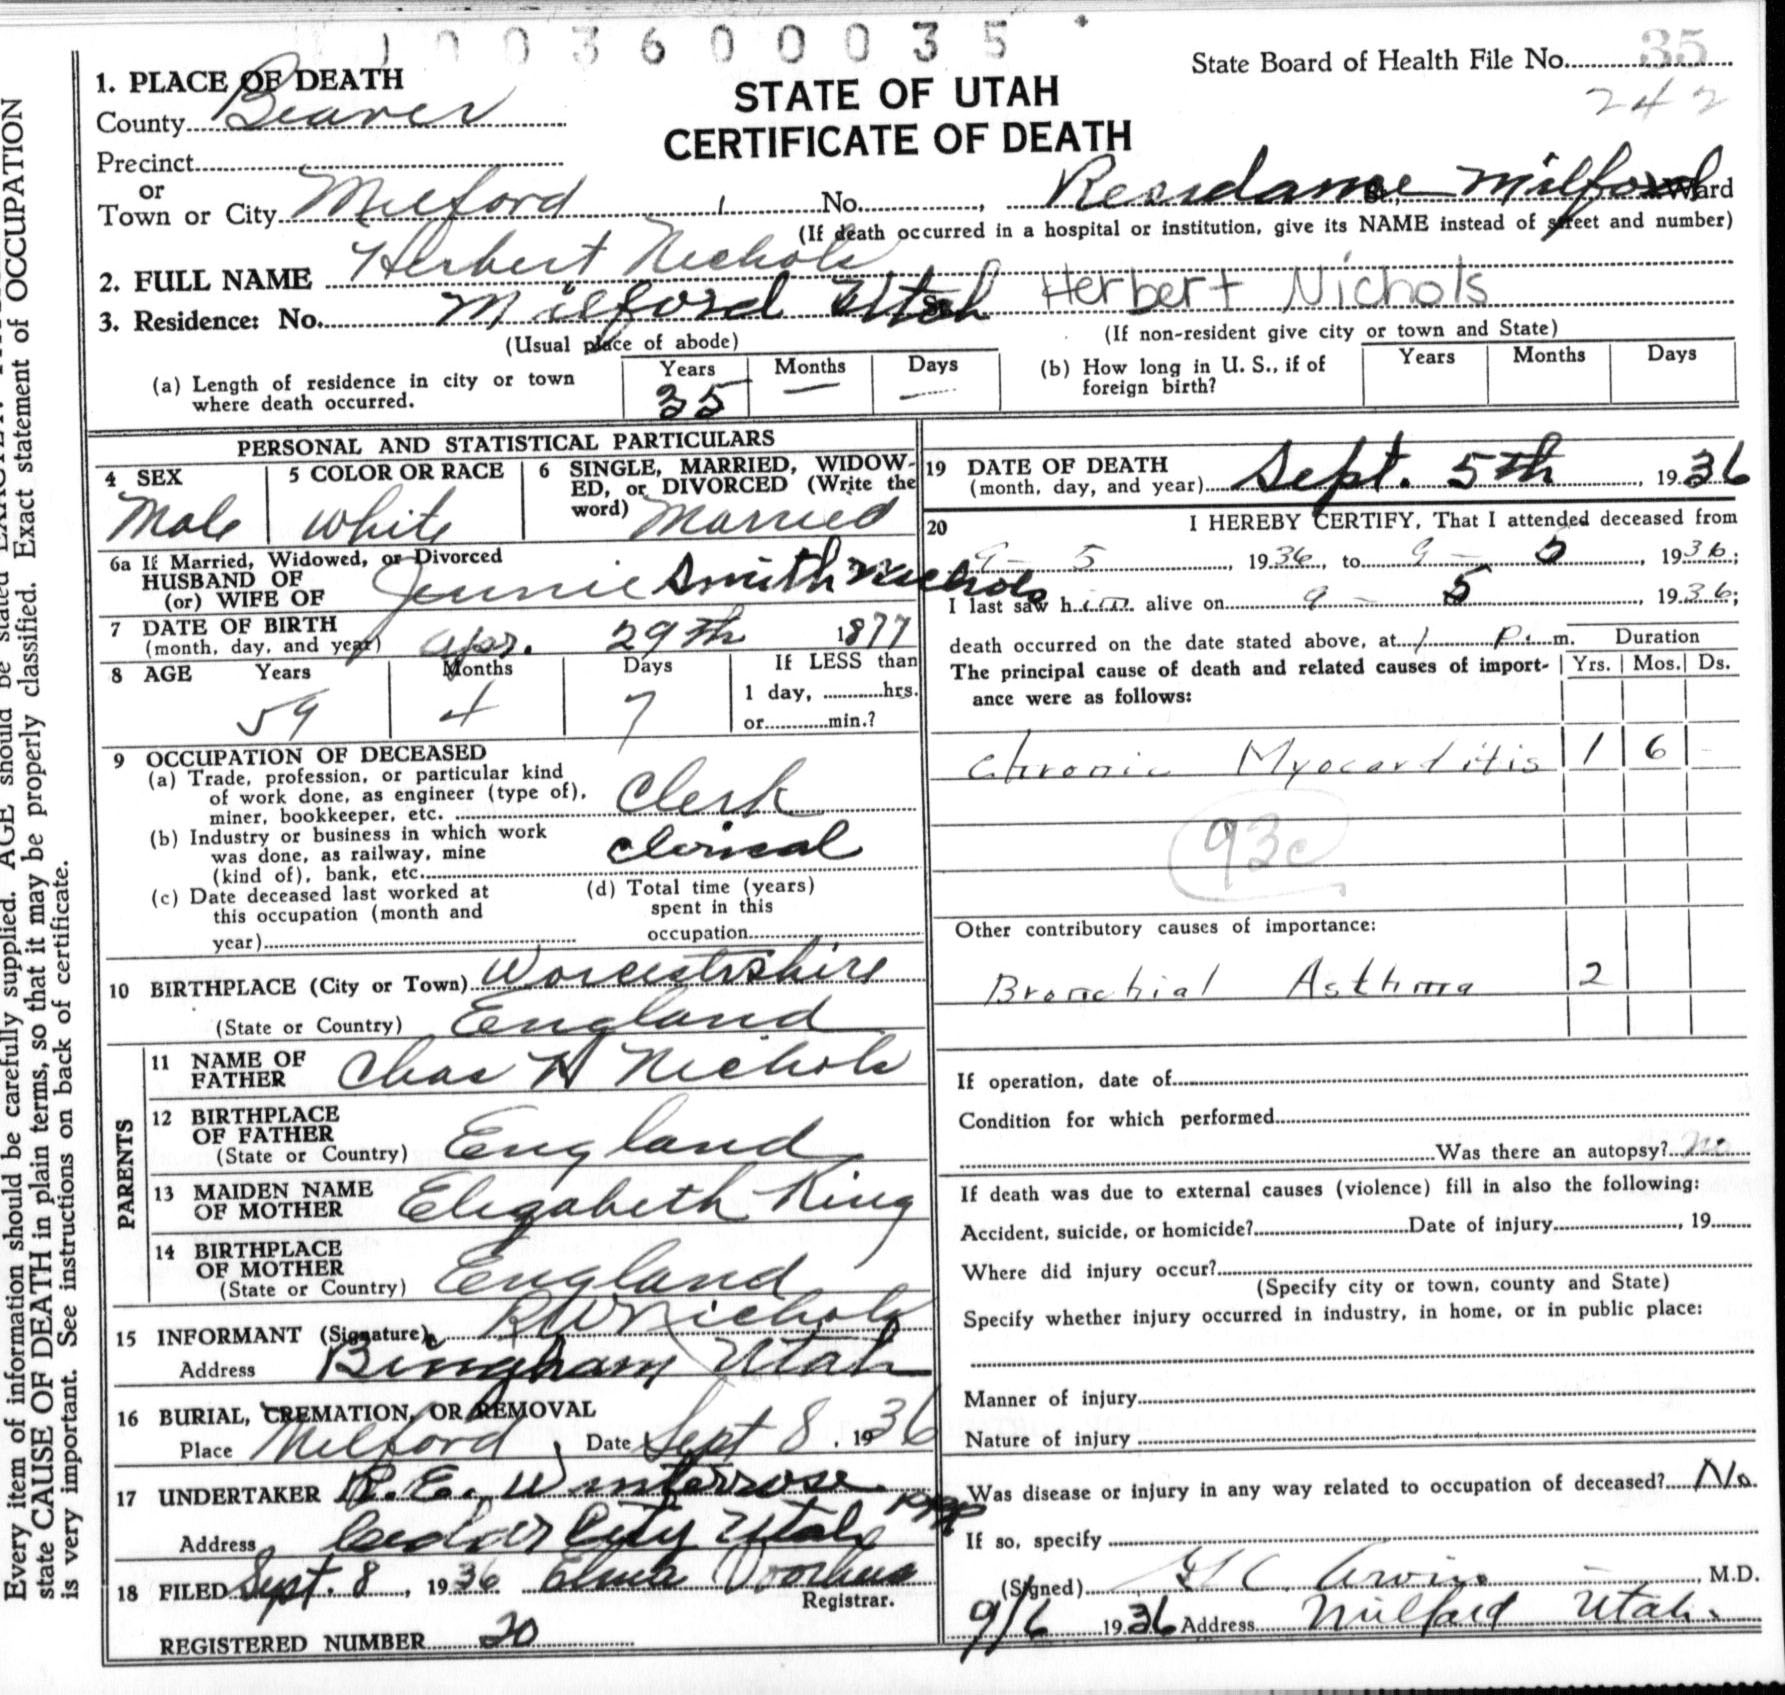 1 0 0 3 6 0 0 0 3 5
State Board of Health File No. 35
242
STATE OF UTAH
CERTIFICATE OF DEATH
1. PLACE OF DEATH
County Beaver
Precinct
or
Town or City Milford No. , Residance St., Milford Ward
(If death occurred in a hospital or institution, give its NAME instead of street and number)
2. FULL NAME Herbert Nichols Herbert Nichols
3. Residence: No. Milford Utah St.
(Usual place of abode) (If non-resident give city or town and State)
(a) Length of residence in city or town where death occurred. Years 35 Months — Days —
(b) How long in U. S., if of foreign birth? Years Months Days
PERSONAL AND STATISTICAL PARTICULARS
4 SEX Male
5 COLOR OR RACE White
6 SINGLE, MARRIED, WIDOW-
ED, or DIVORCED (Write the
word) Married
6a If Married, Widowed, or Divorced
HUSBAND OF
(or) WIFE OF Jennie Smith Nichols
7 DATE OF BIRTH
(month, day, and year) Apr. 29th 1877
8 AGE Years 59 Months 4 Days 7
If LESS than
1 day, hrs.
or min.?
9 OCCUPATION OF DECEASED
(a) Trade, profession, or particular kind
of work done, as engineer (type of),
miner, bookkeeper, etc. Clerk
(b) Industry or business in which work
was done, as railway, mine
(kind of), bank, etc. Clerical
(c) Date deceased last worked at
this occupation (month and
year)
(d) Total time (years)
spent in this
occupation
10 BIRTHPLACE (City or Town) Worcestrshire
(State or Country) England
PARENTS
11 NAME OF
FATHER Chas H Nichols
12 BIRTHPLACE
OF FATHER
(State or Country) England
13 MAIDEN NAME
OF MOTHER Elizabeth King
14 BIRTHPLACE
OF MOTHER
(State or Country) England
15 INFORMANT (Signature) R W Nichols
Address Bingham Utah
16 BURIAL, CREMATION, OR REMOVAL
Place Milford , Date Sept 8 , 1936
17 UNDERTAKER R. E. Winterrose
Address Cedar City Utah
18 FILED Sept. 8 , 1936 Elma Voorhees
Registrar.
REGISTERED NUMBER 20
19 DATE OF DEATH
(month, day, and year) Sept. 5th , 1936
20 I HEREBY CERTIFY, That I attended deceased from
9 - 5 , 1936, to 9 - 5 , 1936;
I last saw him alive on 9 - 5 , 1936;
death occurred on the date stated above, at 1 P. m.
Duration
The principal cause of death and related causes of import-
ance were as follows: Yrs. Mos. Ds.
Chronic Myocarditis 1 6 -
93c
Other contributory causes of importance:
Bronchial Asthma 2
If operation, date of
Condition for which performed
Was there an autopsy? No
If death was due to external causes (violence) fill in also the following:
Accident, suicide, or homicide? Date of injury , 19
Where did injury occur?
(Specify city or town, county and State)
Specify whether injury occurred in industry, in home, or in public place:
Manner of injury
Nature of injury
Was disease or injury in any way related to occupation of deceased? No.
If so, specify
(Signed) , M.D.
9/6 1936 Address Milford Utah.
Every item of information should be carefully supplied. AGE should be stated
state CAUSE OF DEATH in plain terms, so that it may be properly classified. Exact statement of OCCUPATION
is very important. See instructions on back of certificate.